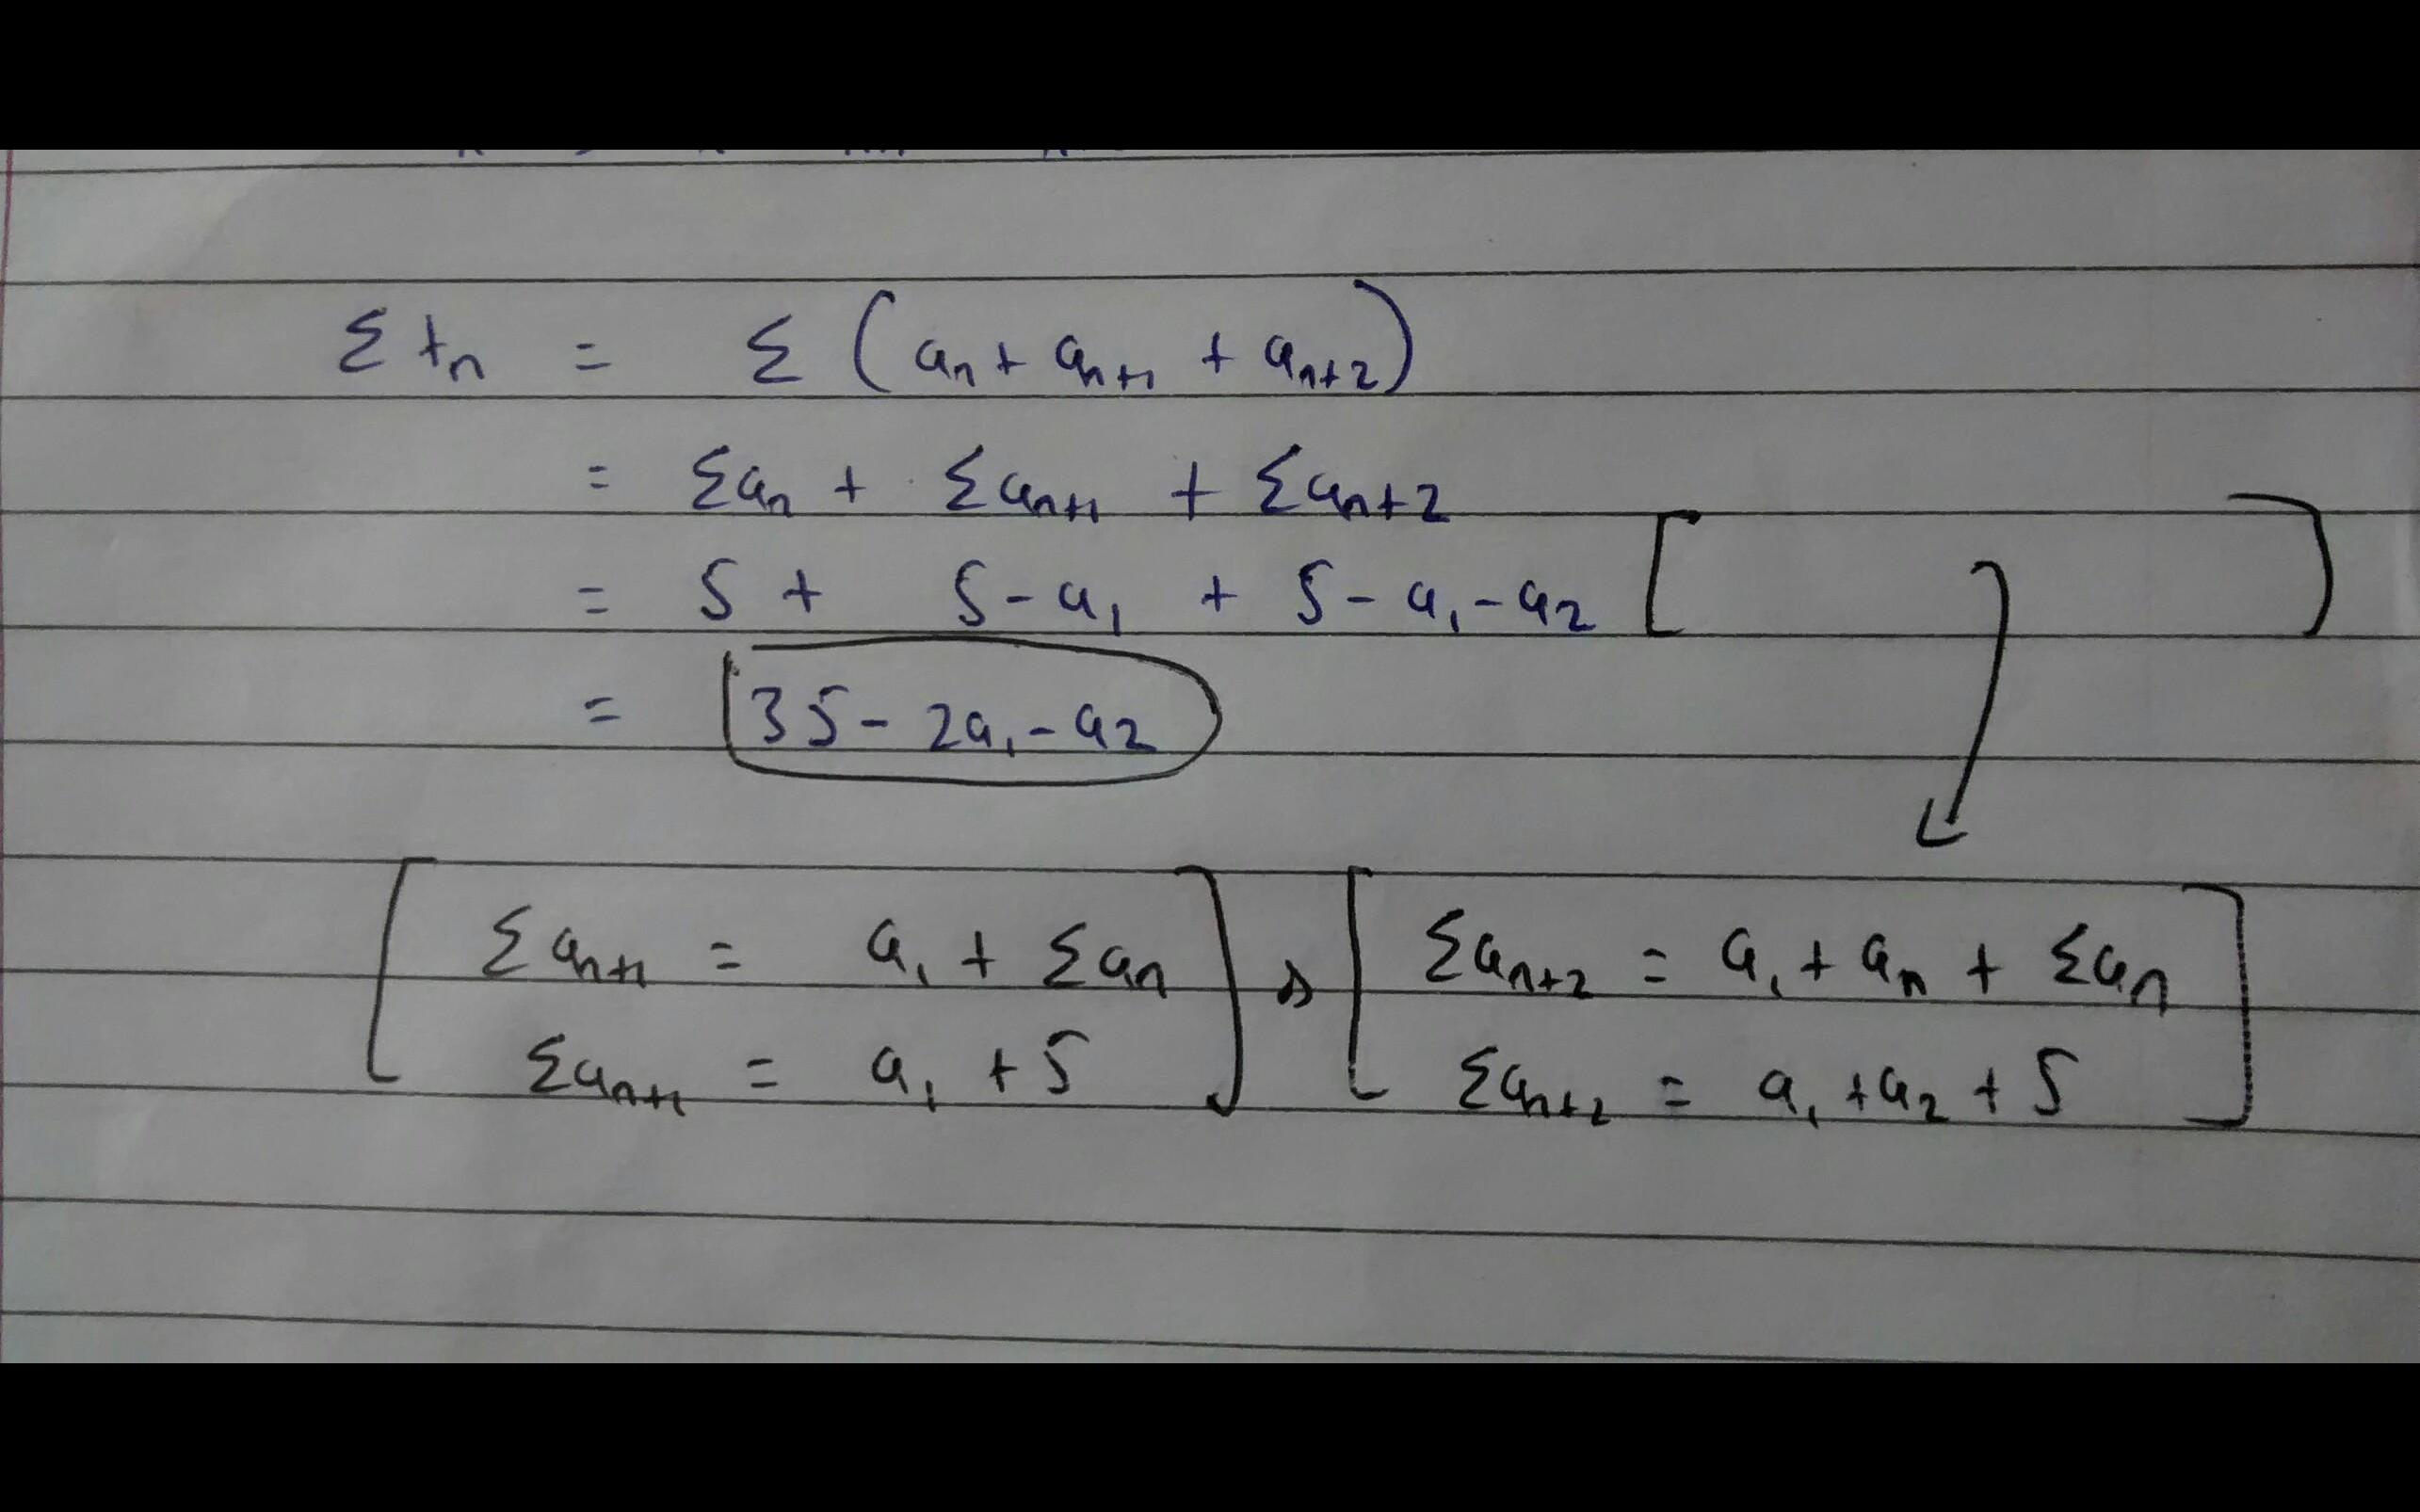 Σ tn = Σ (an + an+1 + an+2)
= Σan + Σan+1 + Σan+2
= S + S - a1 + S - a1 - a2 [ ]
= 3S - 2a1 - a2
[ Σan+1 = a1 + Σan ] & [ Σan+2 = a1 + an + Σan ]
Σan+1 = a1 + S Σan+2 = a1 + a2 + S